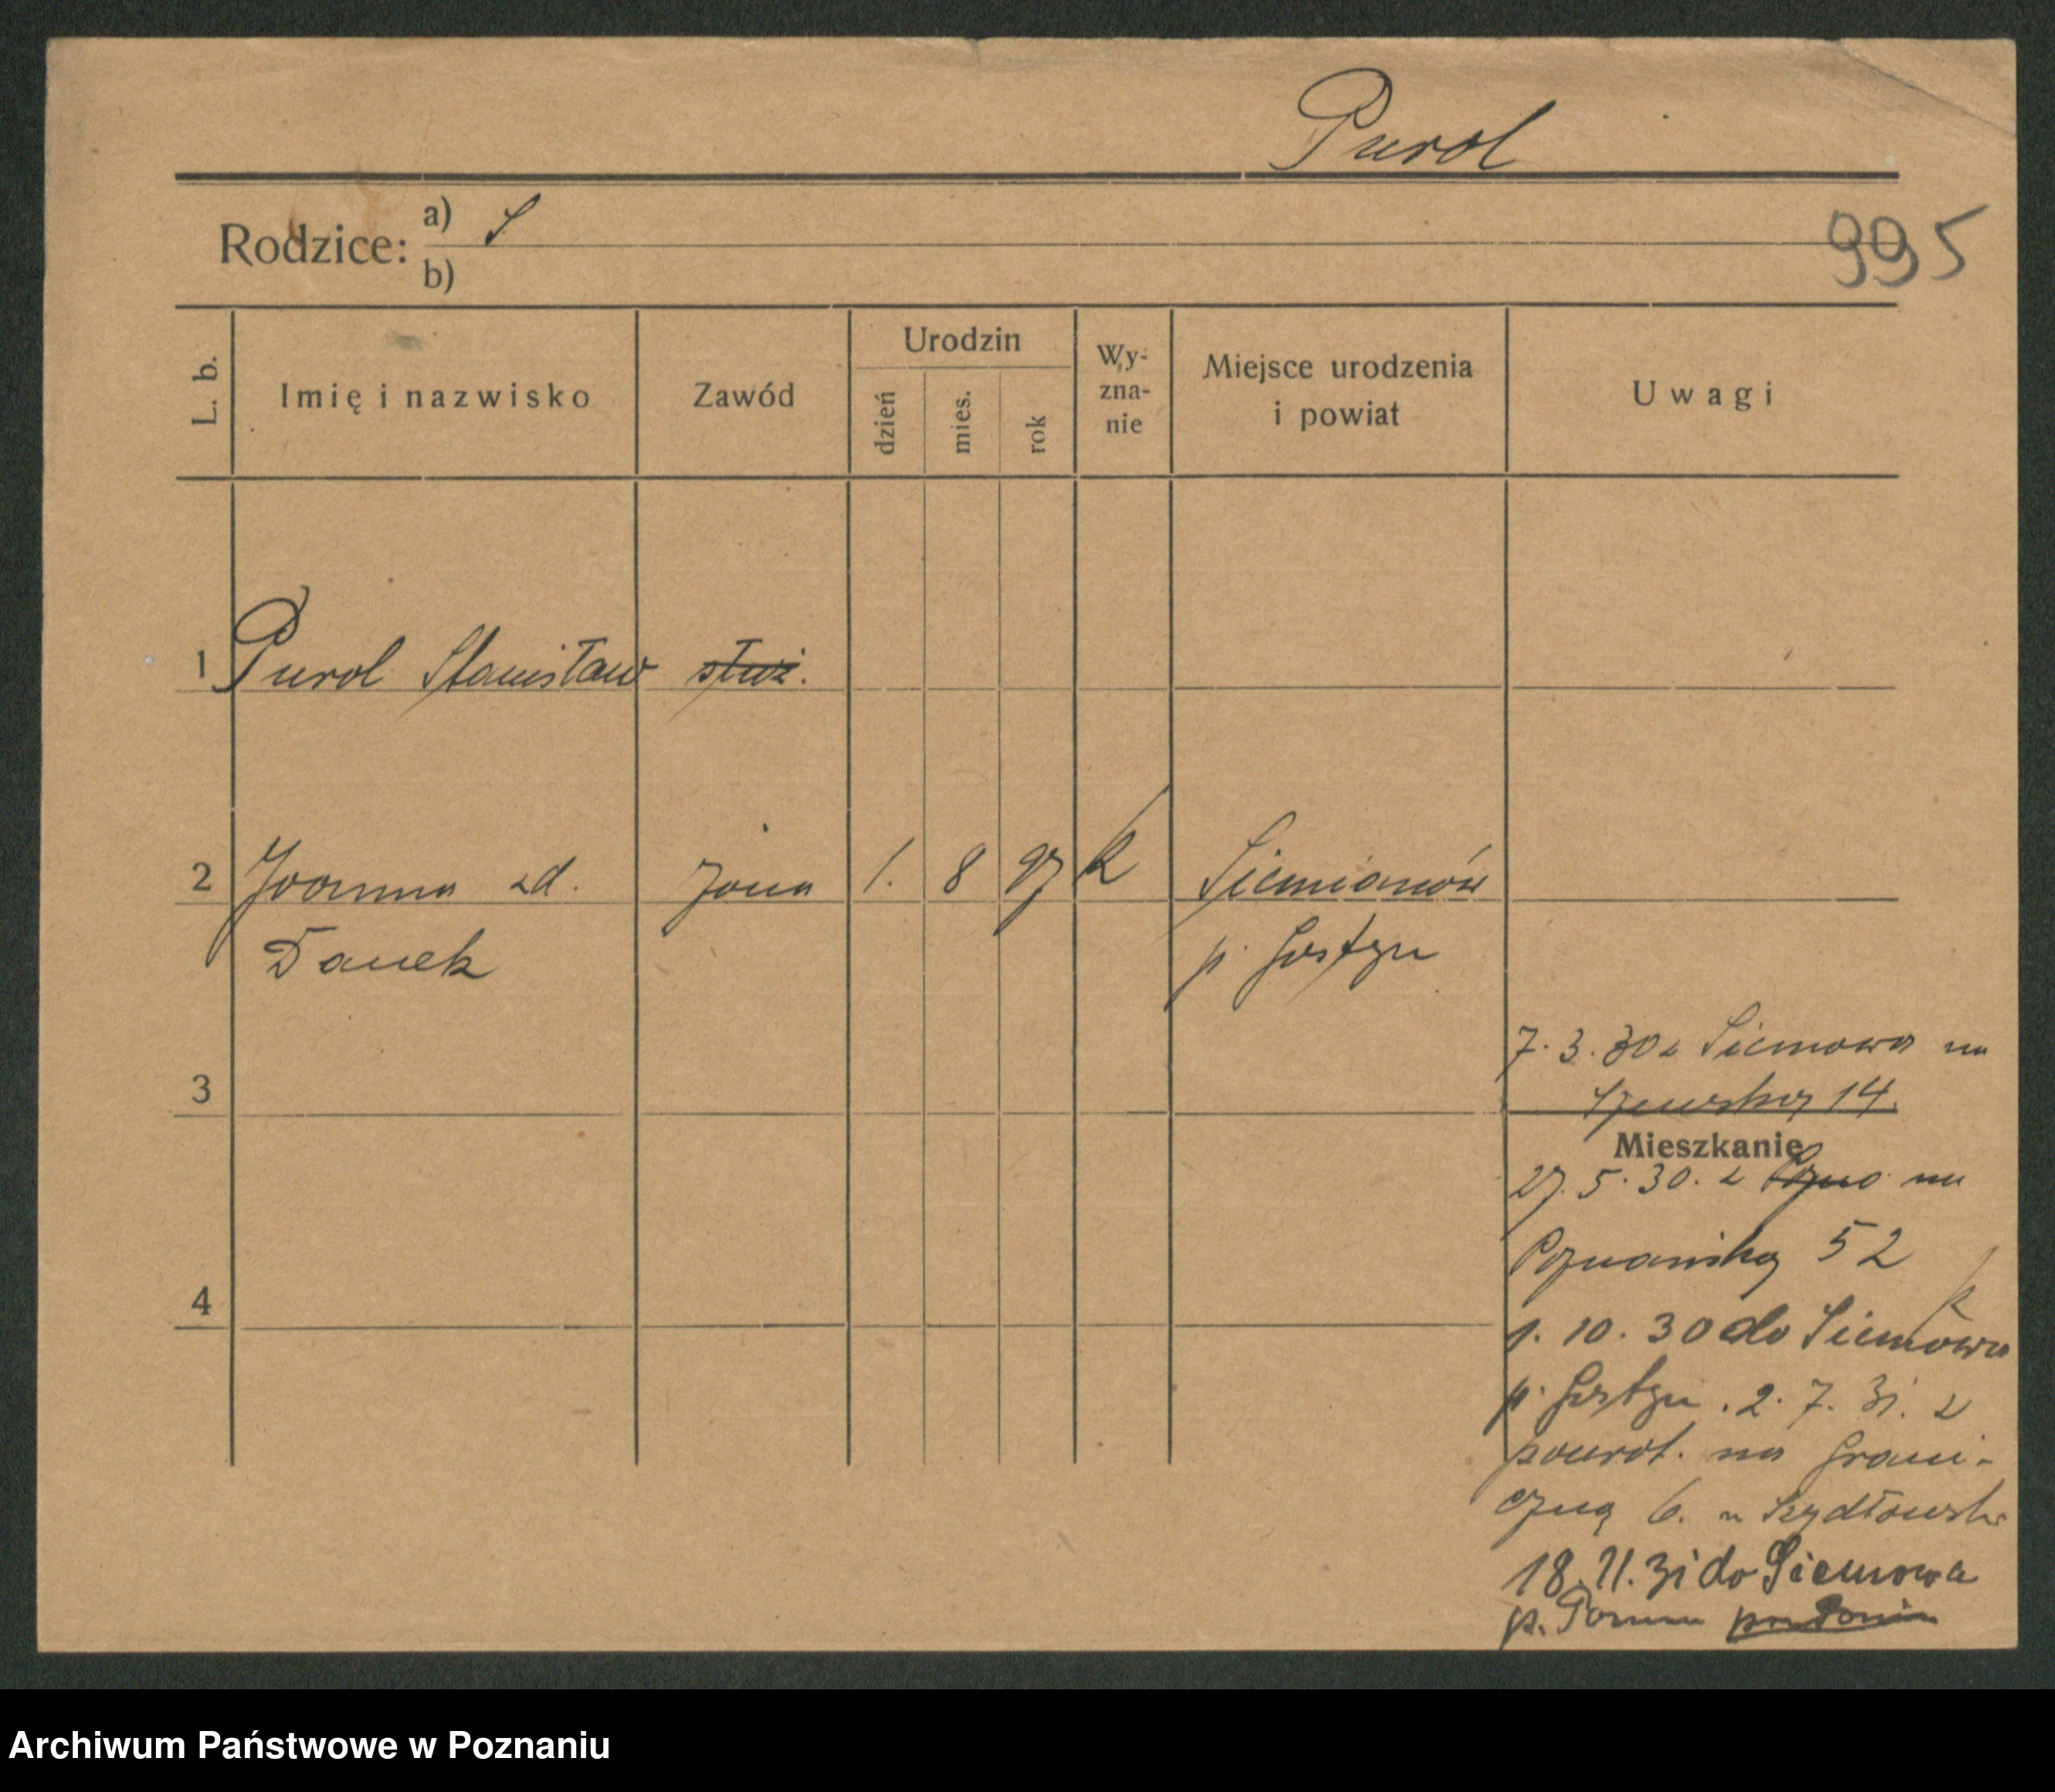 Purol
Rodzice: a) S
b)
995
L. b.
Imię i nazwisko
Zawód
Urodzin
dzień
mies.
rok
Wy-
zna-
nie
Miejsce urodzenia
i powiat
Uwagi
1 Purol Stanisław służ.
2 Joanna zd. żona 1. 8 97 k Siemianów
Danek p. Gostyn
7. 3. 30 z Siemowa na
3 14.
Mieszkanie
27. 5. 30. z na
Poznańską 52
4
1. 10. 30 do Siemowa
p. Gostyn. 2. 7. 31. z
powrot. na Grani-
czną 6. u Szydłowsk
18. 11. 31 do Siemowa
p.
Archiwum Państwowe w Poznaniu